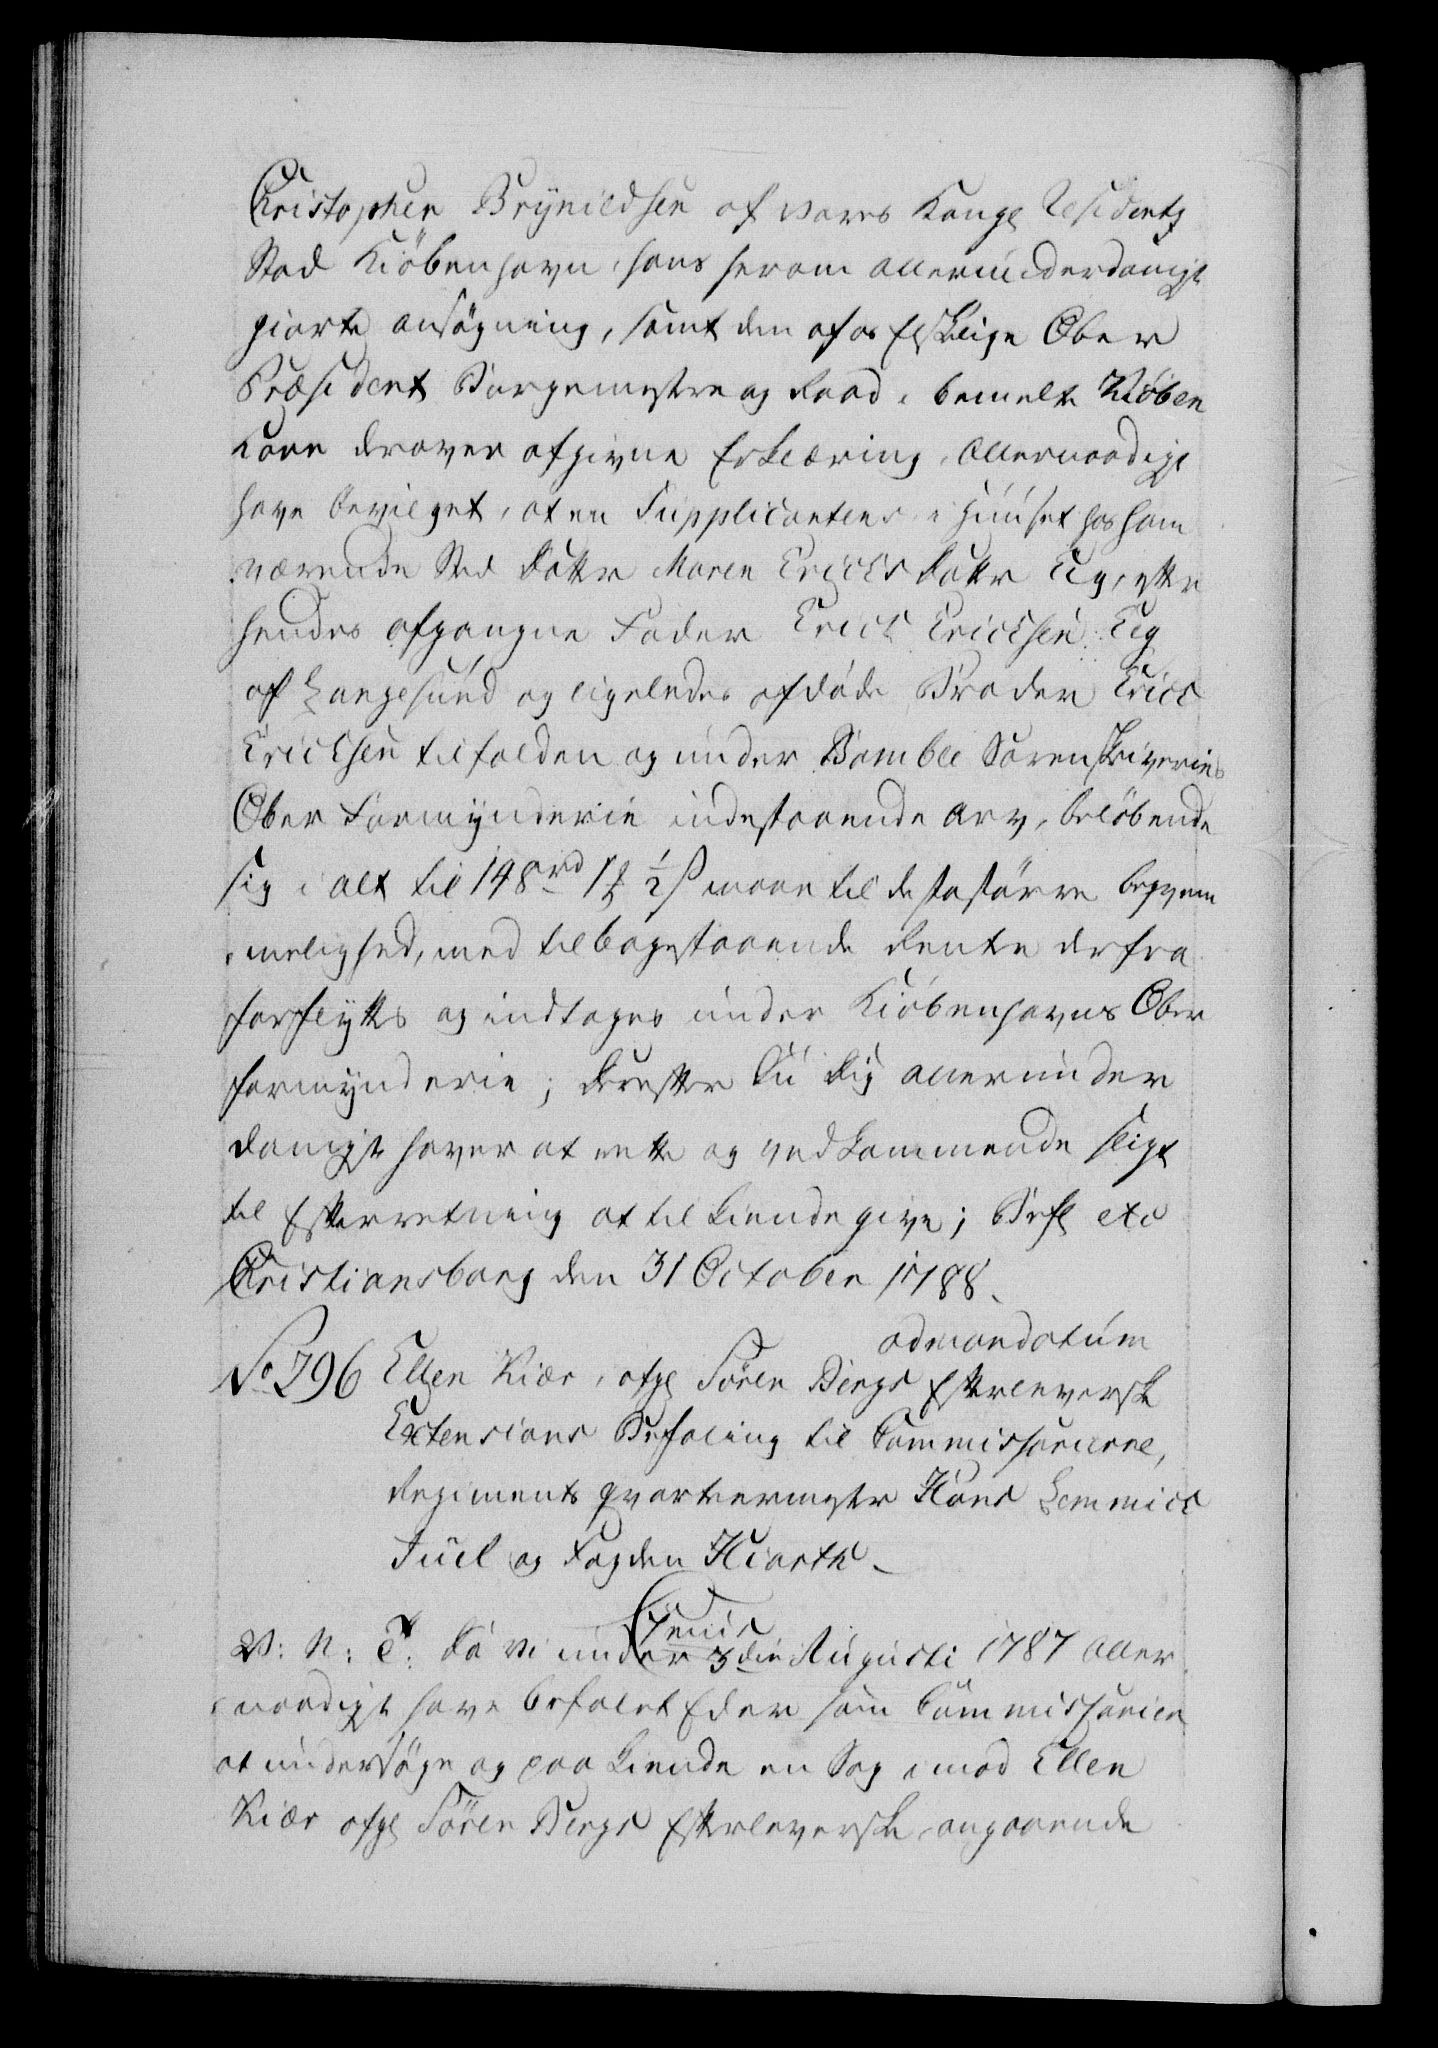 Christopher Brynildsen af vores Kongl Residentz
Stad Kiöbenhavn, hans herom allerunderdanigst
giorte ansögning, samt den af os Elskelige Ober
Præsident Borgemestre og Raad i bemelte Kiöben
havn derover afgivne Erklæring, allernaadigst
have bevilget, at en Supplicantens i Huuset hos ham
værende Sted Datter Maren Ericksdatter Lÿ, efter
hendes afgangne Fader Erick Ericksen
af Langesund og ligeledes afdöde Broder Erick
Ericksen tilfalden og under Bamble Sorenskriveries
Ober Formynderie indestaaende Arv, belöbende
sig i alt til 148 rd 1 ½ s maae til destostörre beqvem
melighed, med tilbagestaaende Rente derfra
forflyttes og indtages under Kiöbenhavns Ober
formynderie; derefter Du Dig allerunder
danigst haver at rette og vedkommende sligt
til Efterretning at tilkiendegive; Befl etc
Christiansborg den 31 October 1788.
ad mandatum
No 296 Ellen Kiær, afgl Sören Bergs Efterleverske
Extensions Befaling til Commissarierne,
Regiments qvarteermester Hans Lemmick
Juel og Fogden Hiorth
Genis
V: N: T: Da vi under 3die Augusti 1787 aller
naadigst have befalet Eder som Commissarier
at undersöge og paakiende en Sag imod Ellen
Kiær afgl Sören Bergs Efterleverske, angaaende